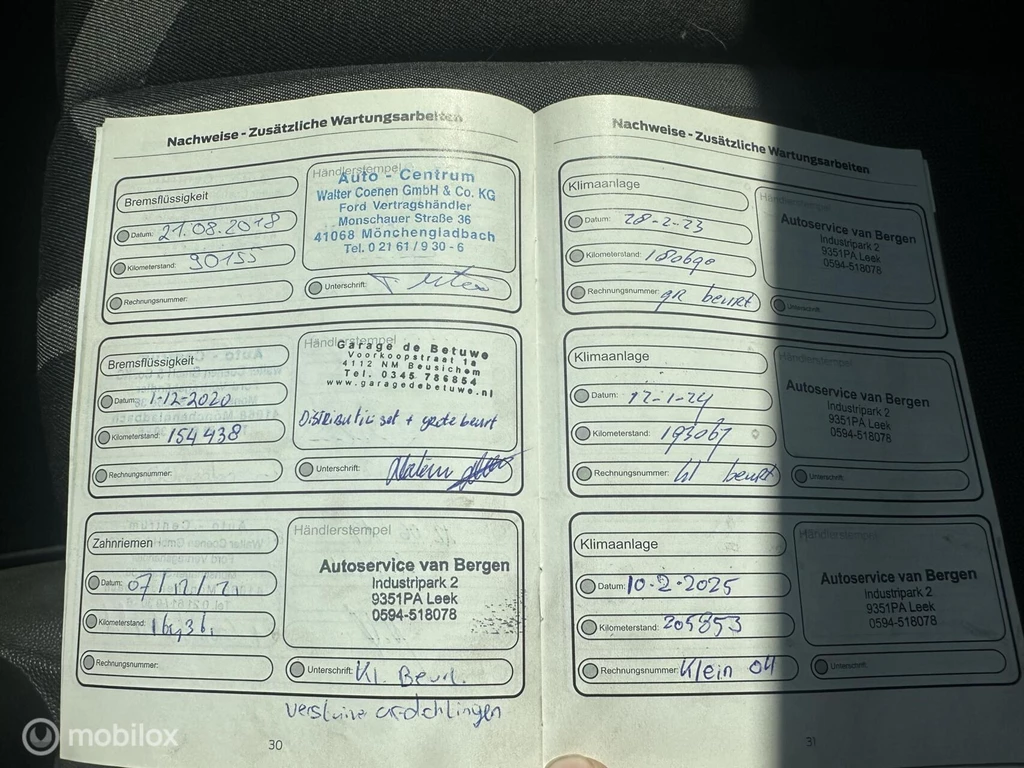 Nachweise - Zusätzliche Wartungsarbeiten
Bremsflüssigkeit
Datum: 21.08.2018
Kilometerstand: 90155
Rechnungsnummer:
Händlerstempel
Auto - Centrum
Walter Coenen GmbH & Co. KG
Ford Vertragshändler
Monschauer Straße 36
41068 Mönchengladbach
Tel. 0 21 61 / 9 30 - 6
Unterschrift:
Bremsflüssigkeit
Datum: 1-12-2020
Kilometerstand: 154438
Rechnungsnummer:
Händlerstempel
Garage de Betuwe
Voorkoopstraat 1a
4112 NM Beusichem
Tel. 0345 786854
www.garagedebetuwe.nl
Distributie set + grote beurt
Unterschrift:
Zahnriemen
Datum: 07/12/
Kilometerstand:
Rechnungsnummer:
Händlerstempel
Autoservice van Bergen
Industripark 2
9351PA Leek
0594-518078
Unterschrift: Kl. Beurt.
30
Nachweise - Zusätzliche Wartungsarbeiten
Klimaanlage
Datum: 28-2-23
Kilometerstand: 180690
Rechnungsnummer: gr beurt
Händlerstempel
Autoservice van Bergen
Industripark 2
9351PA Leek
0594-518078
Unterschrift:
Klimaanlage
Datum: 12-1-24
Kilometerstand: 193067
Rechnungsnummer: kl beurt
Händlerstempel
Autoservice van Bergen
Industripark 2
9351PA Leek
0594-518078
Unterschrift:
Klimaanlage
Datum: 10-2-2025
Kilometerstand: 205853
Rechnungsnummer: Klein OH
Händlerstempel
Autoservice van Bergen
Industripark 2
9351PA Leek
0594-518078
Unterschrift:
31
mobilox